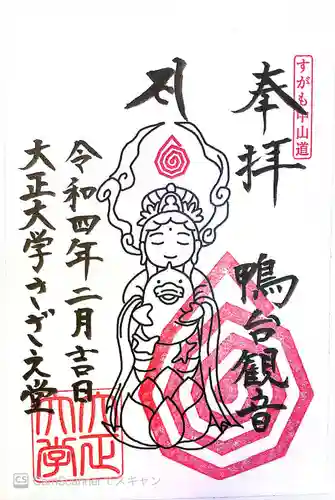 奉拝
すがも中山道
鴨台観音
令和四年二月吉日
大正大学さざえ堂
大正
大学
CS CamScanner でスキャン